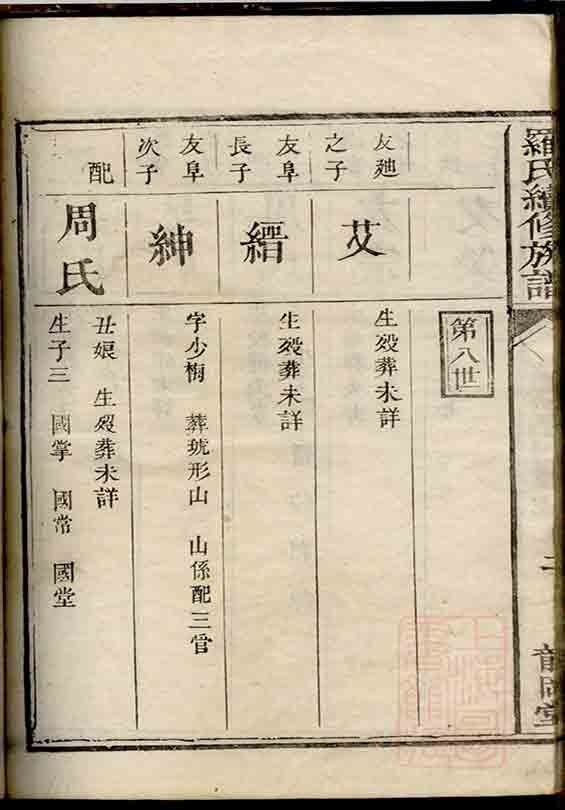 羅氏續修族譜
二
第八世
友廸
之子
艾
生殁葬未詳
友阜
長子
縉
生殁葬未詳
友阜
次子
紳
字少梅 葬琥形山 山係配三管
配
周氏
丑娘 生殁葬未詳
生子三 國掌 國常 國堂